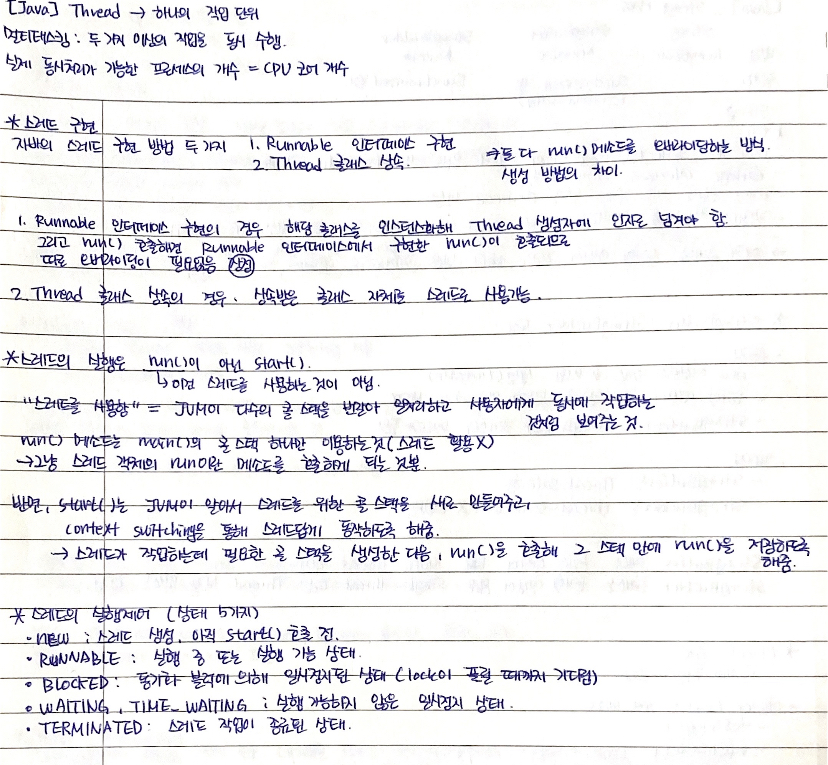 [Java] Thread → 하나의 작업 단위
멀티태스킹 : 두 가지 이상의 작업을 동시 수행.
실제 동시처리가 가능한 프로세스의 개수 = CPU 코어 개수
* 스레드 구현
자바의 스레드 구현 방법 두 가지 1. Runnable 인터페이스 구현
2. Thread 클래스 상속.
→ 둘 다 run() 메소드를 오버라이딩하는 방식.
생성 방법의 차이.
1. Runnable 인터페이스 구현의 경우 해당 클래스를 인스턴스화해 Thread 생성자에 인자로 넘겨야 함
그리고 run() 호출하면 Runnable 인터페이스에서 구현한 run()이 호출되므로
따로 오버라이딩이 필요없음
2. Thread 클래스 상속의 경우, 상속받은 클래스 자체를 스레드로 사용가능.
* 스레드의 실행은 run()이 아닌 start().
↳ 이건 스레드를 사용하는 것이 아님.
"스레드를 사용함" = JVM이 다수의 콜 스택을 번갈아 일처리하고 사용자에게 동시에 작업하는
것처럼 보여주는 것.
run() 메소드는 main()의 콜 스택 하나만 이용하는 것 (스레드 활용 X)
→ 그냥 스레드 객체의 run이란 메소드를 호출하게 되는 것뿐.
반면, start()는 JVM이 알아서 스레드를 위한 콜 스택을 새로 만들어주고,
context switching을 통해 스레드답게 동작하도록 해줌.
→ 스레드가 작업하는데 필요한 콜 스택을 생성한 다음, run()을 호출해 그 스택 안에 run()을 저장하도록
해줌.
* 스레드의 실행제어 (상태 5가지)
· NEW : 스레드 생성, 아직 start() 호출 전.
· RUNNABLE : 실행 중 또는 실행 가능 상태.
· BLOCKED : 동기화 블럭에 의해 일시정지된 상태 (lock이 풀릴 때까지 기다림)
· WAITING, TIME_WAITING : 실행 가능하지 않은 일시정지 상태.
· TERMINATED : 스레드 작업이 종료된 상태.